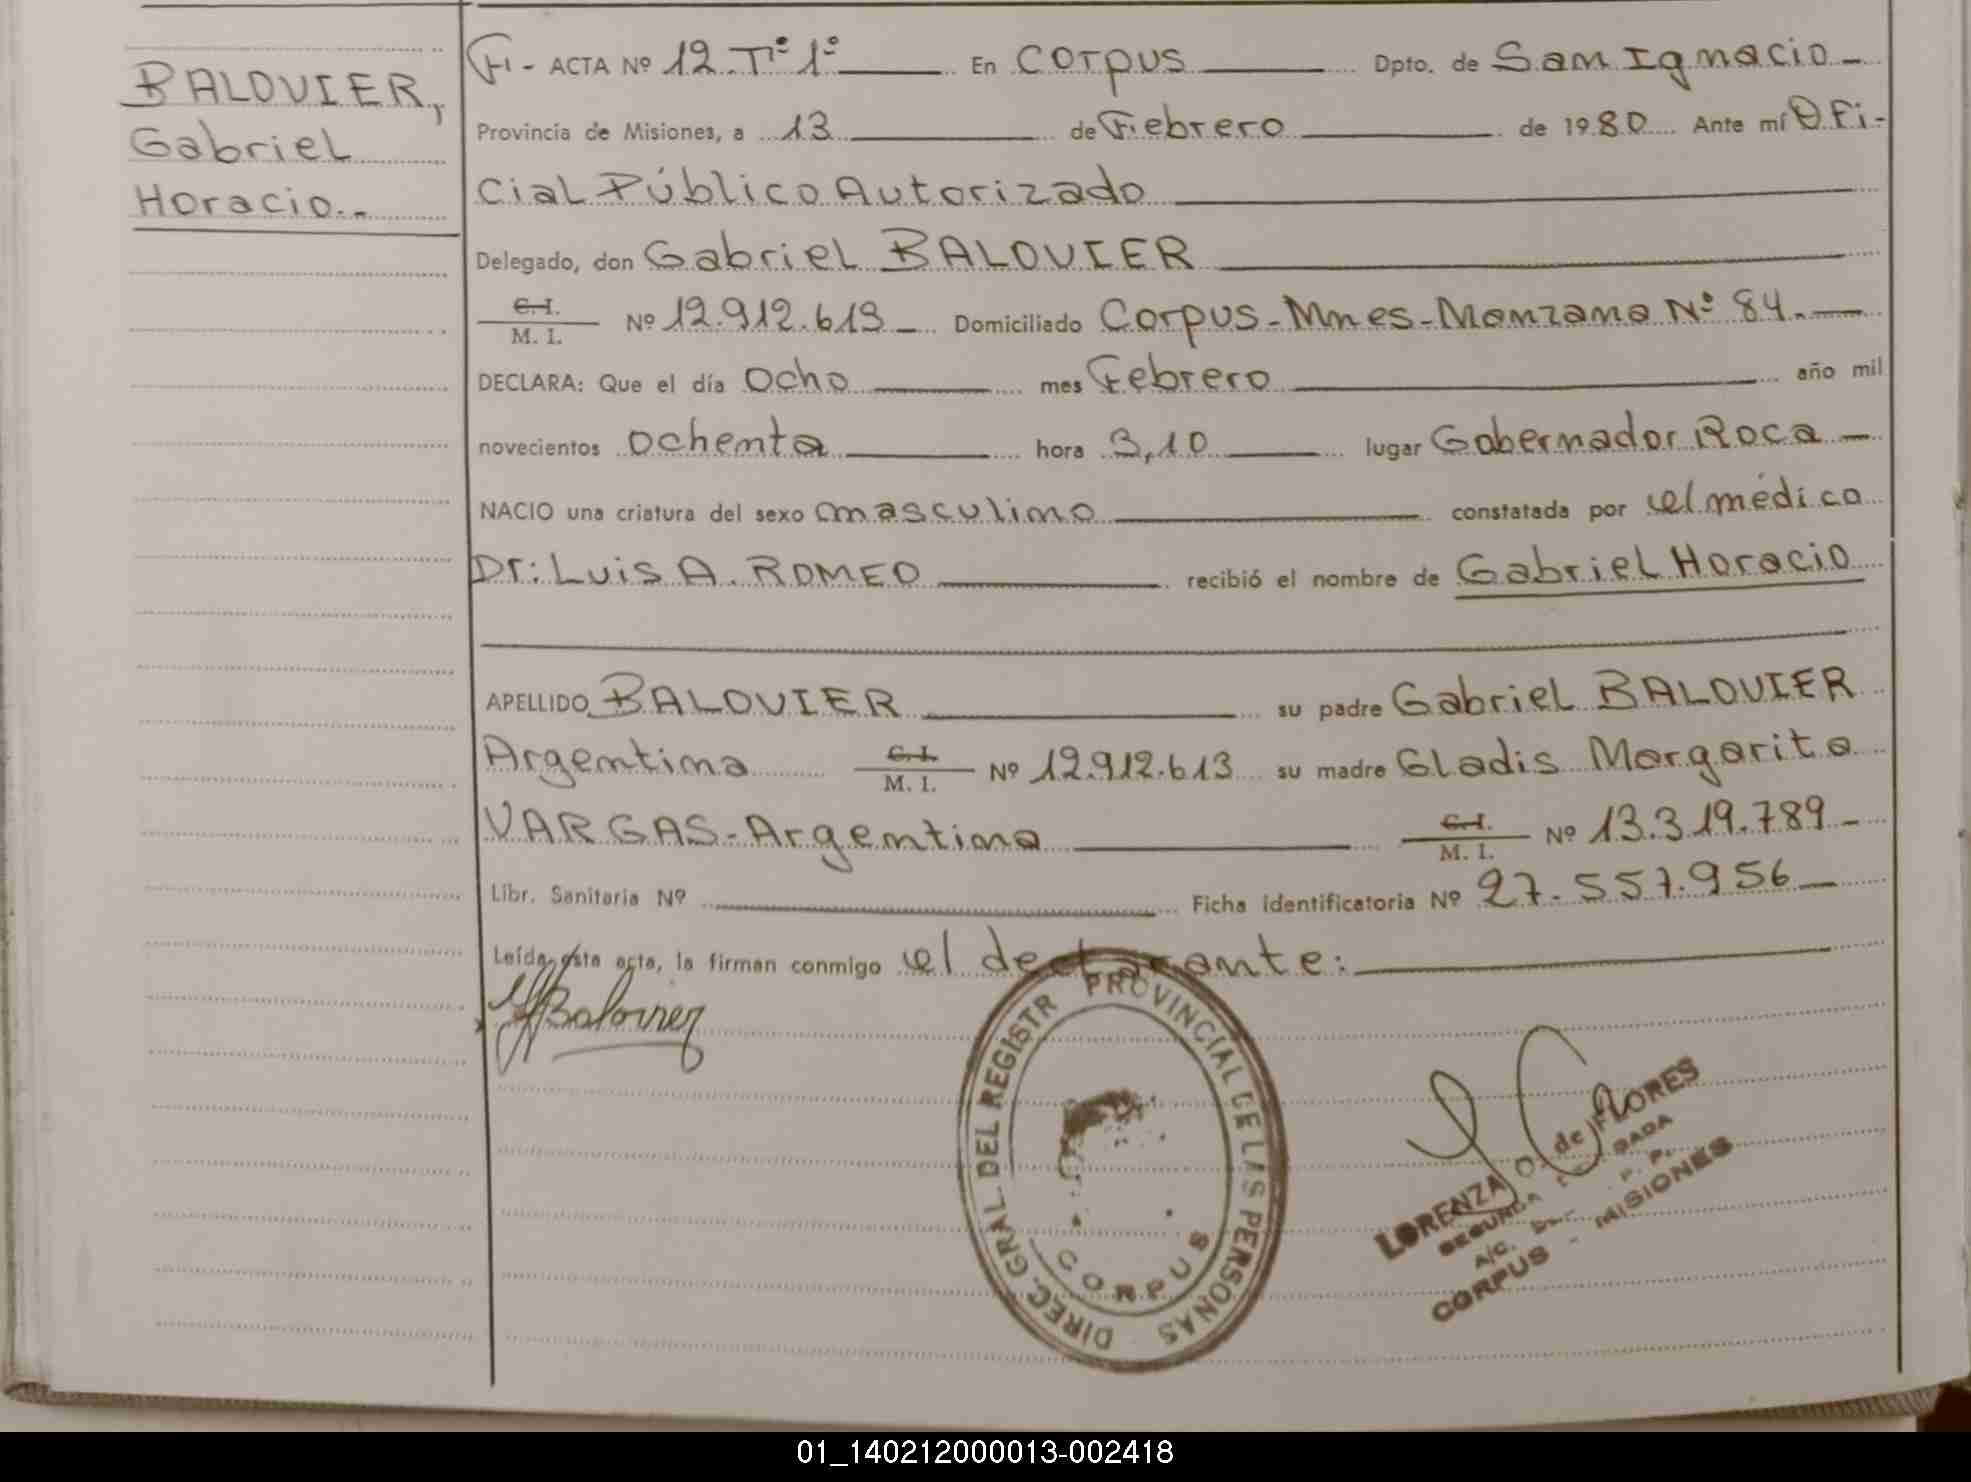 BALOVIER,
Gabriel
Horacio.-
ACTA Nº 12 Tº 1º En Corpus Dpto. de San Ignacio -
Provincia de Misiones, a 13 de Febrero de 1980 Ante mí Ofi-
cial Público Autorizado
Delegado, don Gabriel BALOVIER
C.I. M. I. Nº 12.912.613 - Domiciliado Corpus-Mnes-Manzana Nº 84.-
DECLARA: Que el día Ocho mes Febrero año mil
novecientos ochenta hora 3,10 lugar Gobernador Roca -
NACIO una criatura del sexo masculino constatada por el médico
Dr: Luis A. ROMEO recibió el nombre de Gabriel Horacio
APELLIDO BALOVIER su padre Gabriel BALOVIER
Argentina C.I. M. I. Nº 12.912.613 su madre Gladis Margarita
VARGAS-Argentina C.I. M. I. Nº 13.319.789-
Libr. Sanitaria Nº Ficha identificatoria Nº 27.557.956-
Leída esta acta, la firman conmigo el declarante:
Balovier
DIREC. GRAL DEL REGISTR PROVINCIAL DE LAS PERSONAS
CORPUS
LORENZA O. de FLORES
SEGUNDA
A/C.
CORPUS - MISIONES
01_140212000013-002418